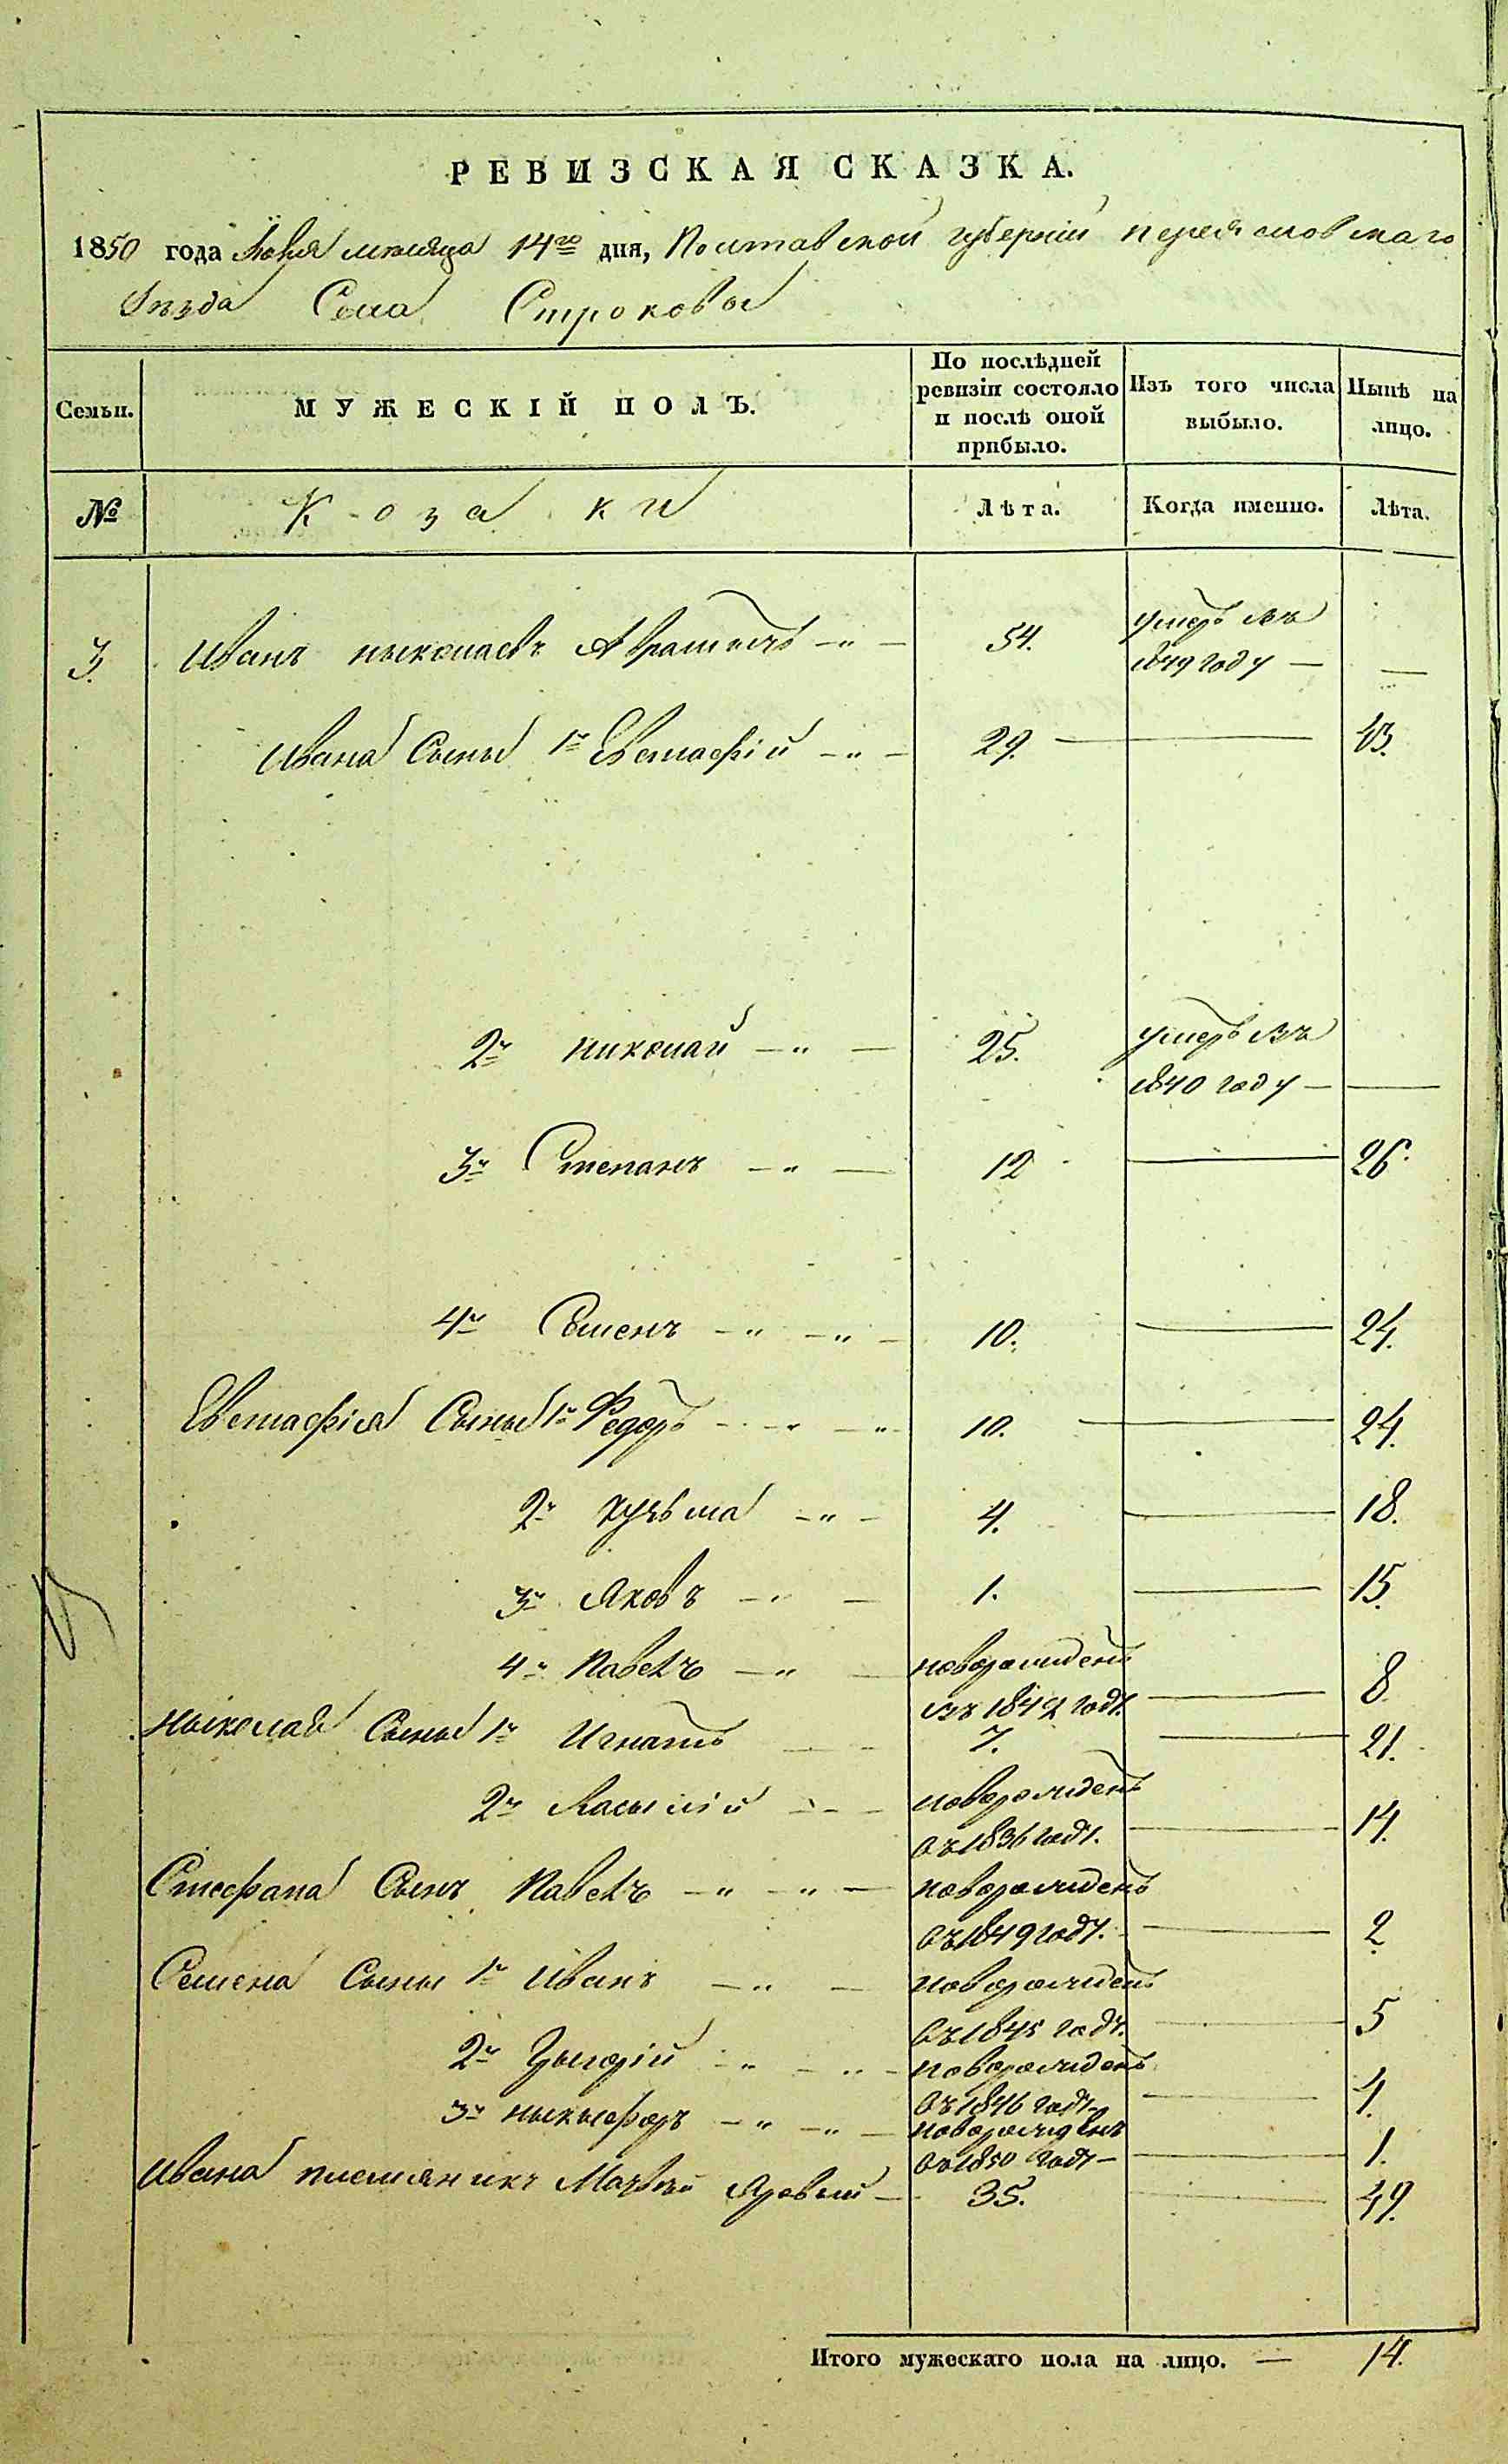 РЕВИЗСКАЯ СКАЗКА.
1850 года Июня месяца 14го дня, Полтавской губернии переяславскаго
Уезда Села Строковы
Семьи. МУЖЕСКІЙ ПОЛЪ. По послѣдней ревизіи состояло и послѣ оной прибыло. Изъ того числа выбыло. Нынѣ на лицо.
№ Козаки Лѣта. Когда именно. Лѣта.
3. Иванъ ныколаевъ 54. умеръ въ 1849 году — —
Ивана Сыны 1й Евстафій 29. — 43.
2й николай 25. умеръ въ 1840 году — —
3й Степанъ 12 — 26.
4й Семенъ 10. — 24.
Евстафія Сыны 1й Федоръ 10. — 24.
2й кузьма 4. — 18.
3й Яковъ 1. — 15.
4й Павелъ новорожденъ въ 1842 году. — 8
ныколая Сыны 1й Игнатъ 7. — 21.
2й Васылій новорожденъ въ 1836 году. — 14.
Стефана Сынъ Павелъ новорожденъ въ 1849 году. — 2
Семена Сыны 1й Иванъ новорожденъ въ 1845 году. — 5
2й Грыгорій новорожденъ въ 1846 году — 4.
3й ныкыфоръ новорожденъ въ 1850 году — 1.
Ивана племяникъ Матвѣй Яровый — 35. — 49.
Итого мужескаго пола на лицо. — 14.